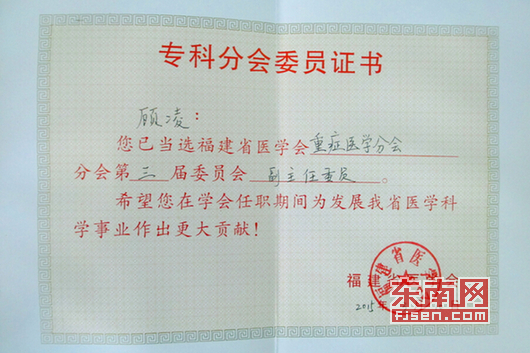 专科分会委员证书
顾凌：
您已当选福建省医学会重症医学分会
分会第三届委员会副主任委员。
希望您在学会任职期间为发展我省医学科
学事业作出更大贡献！
福建省医学会
2015年
东南网
FJSEN.COM